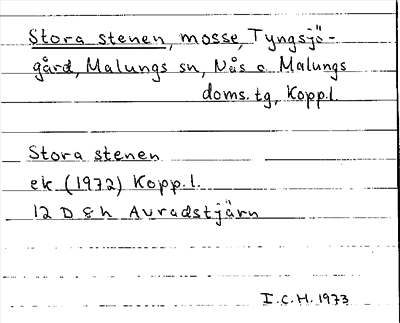 Stora stenen, mosse, Tyngsjö-
gård, Malungs sn, Nås o Malungs
doms. tg, Kopp.l.
Stora stenen
ek (1972) Kopp.l.
12 D 8 h Avradstjärn
I.C.H. 1973